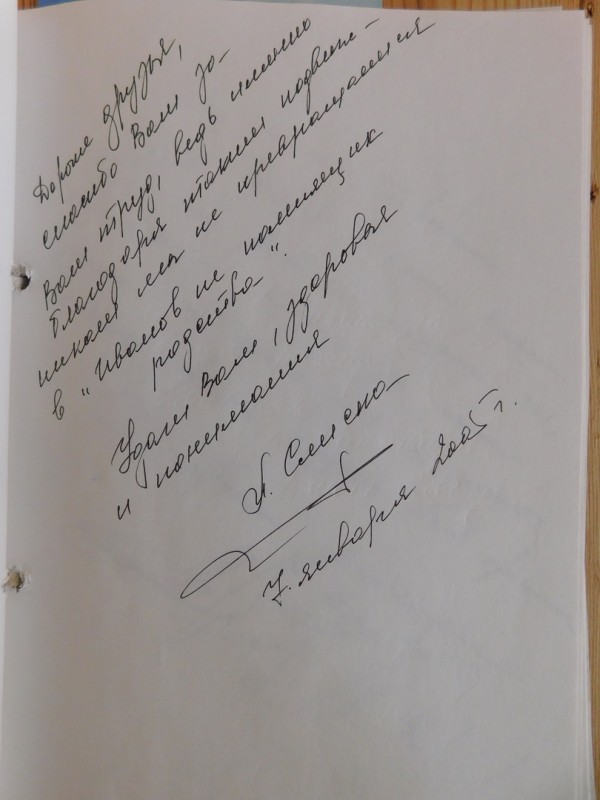 Дорогие друзья,
спасибо Вам за
Ваш труд, ведь именно
благодаря таким подвиж-
никам мы не превращаемся
в "Иванов не помнящих
родства".
Удачи Вам, здоровья
и понимания
7. января 2005 г.